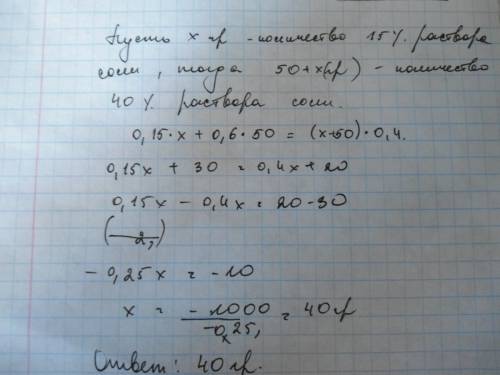 Пусть x гр - количество 15% раствора
соли, тогда 50+x(гр) - количество
40% раствора соли.
0,15·x + 0,6·50 = (x+50)·0,4.
0,15x + 30 = 0,4x + 20
0,15x - 0,4x = 20 - 30
- 0,25x = -10
x = -1000 / -0,25, = 40 гр
Ответ: 40 гр.